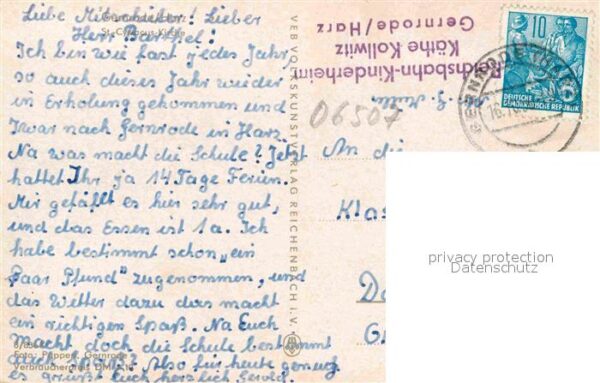 Liebe Mitschüler! Lieber
Herr Barthel!
Gernrode/Harz
St. Cyriacus-Kirche
Ich bin wie fast jedes Jahr,
so auch dieses Jahr wieder
in Erholung gekommen und
zwar nach Gernrode im Harz.
Na was macht die Schule? Jetzt
hattet Ihr ja 14 Tage Ferien.
Mir gefällt es hier sehr gut,
und das Essen ist 1a. Ich
habe bestimmt schon "ein
Paar Pfund" zugenommen, und
das Wetter dazu dass macht
ein richtigen Spaß. Na Euch
Macht doch die Schule bestimmt
auch Spaß? Also für heute genug
es grüßt Euch herzlich Gerold.
Foto: Gernrode
Verbraucherpreis DM
VEB VOLKSKUNSTVERLAG REICHENBACH I. V.
Reichsbahn-Kinderheim
Käthe Kollwitz
Gernrode/Harz
06507
10
DEUTSCHE
DEMOKRATISCHE REPUBLIK
GERNRODE
An die
Klas
privacy protection
Datenschutz